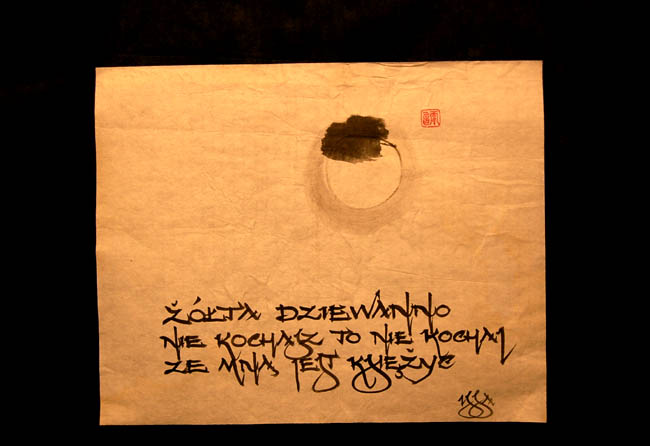 ŻÓŁTA DZIEWANNO
NIE KOCHASZ TO NIE KOCHAJ
ZE MNĄ JEST KSIĘŻYC